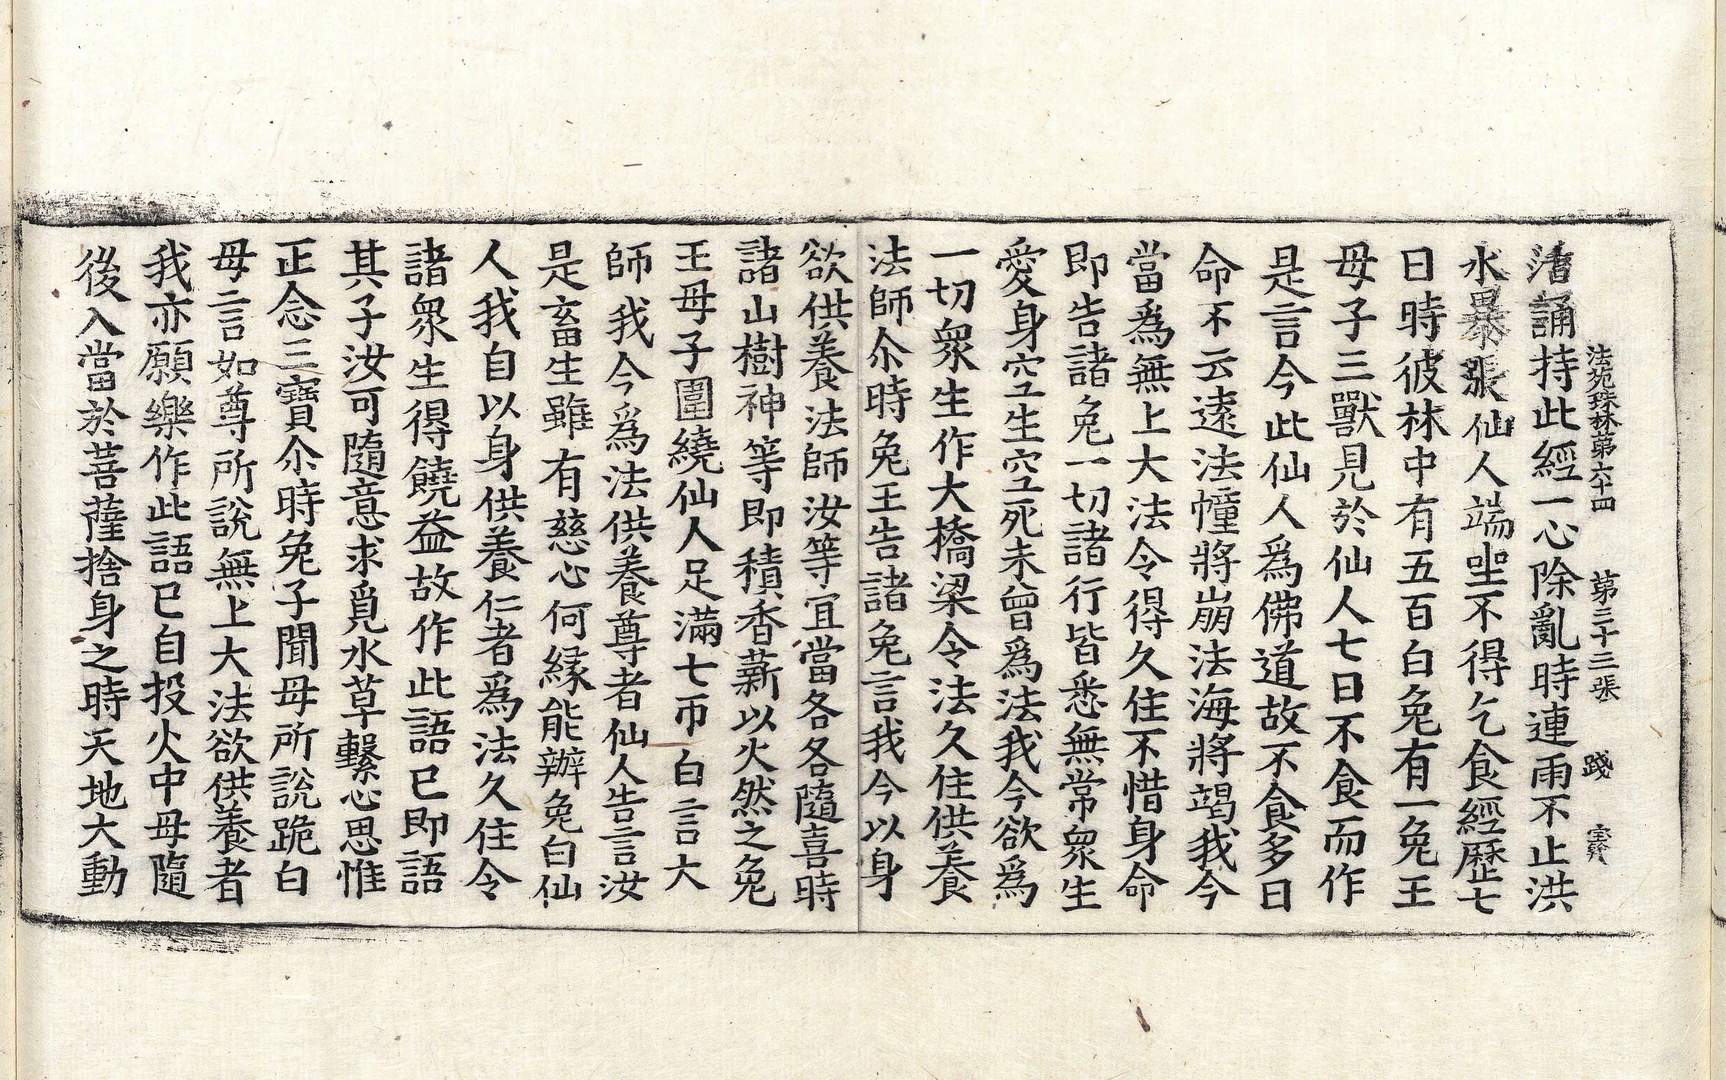 法苑珠林第六十四　第三十三張　踐
潜誦持此經一心除亂時連雨不止洪
水暴張仙人端坐不得乞食經歷七
日時彼林中有五百白兔有一兔王
母子三獸見於仙人七日不食而作
是言今此仙人爲佛道故不食多日
命不云遠法幢將崩法海將竭我今
當爲無上大法令得久住不惜身命
即告諸兔一切諸行皆悉無常衆生
愛身空生空死未曾爲法我今欲爲
一切衆生作大橋梁令法久住供養
法師尒時兔王告諸兔言我今以身
欲供養法師汝等宜當各各隨喜時
諸山樹神等即積香薪以火然之兔
王母子圍繞仙人足滿七帀白言大
師我今爲法供養尊者仙人告言汝
是畜生雖有慈心何緣能辦兔白仙
人我自以身供養仁者爲法久住令
諸衆生得饒益故作此語已即語
其子汝可隨意求覓水草繫心思惟
正念三寶尒時兔子聞母所說跪白
母言如尊所說無上大法欲供養者
我亦願樂作此語已自投火中母隨
後入當於菩薩捨身之時天地大動